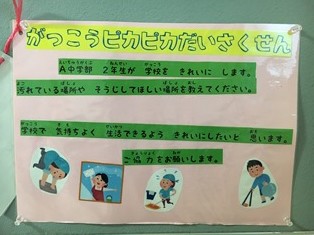 がっこうピカピカだいさくせん
A中学部 2年生が 学校を きれいに します。
汚れている場所や そうじしてほしい場所を教えてください。
学校で 気持ちよく 生活できるよう きれいにしたいと 思います。
ご協力をお願いします。